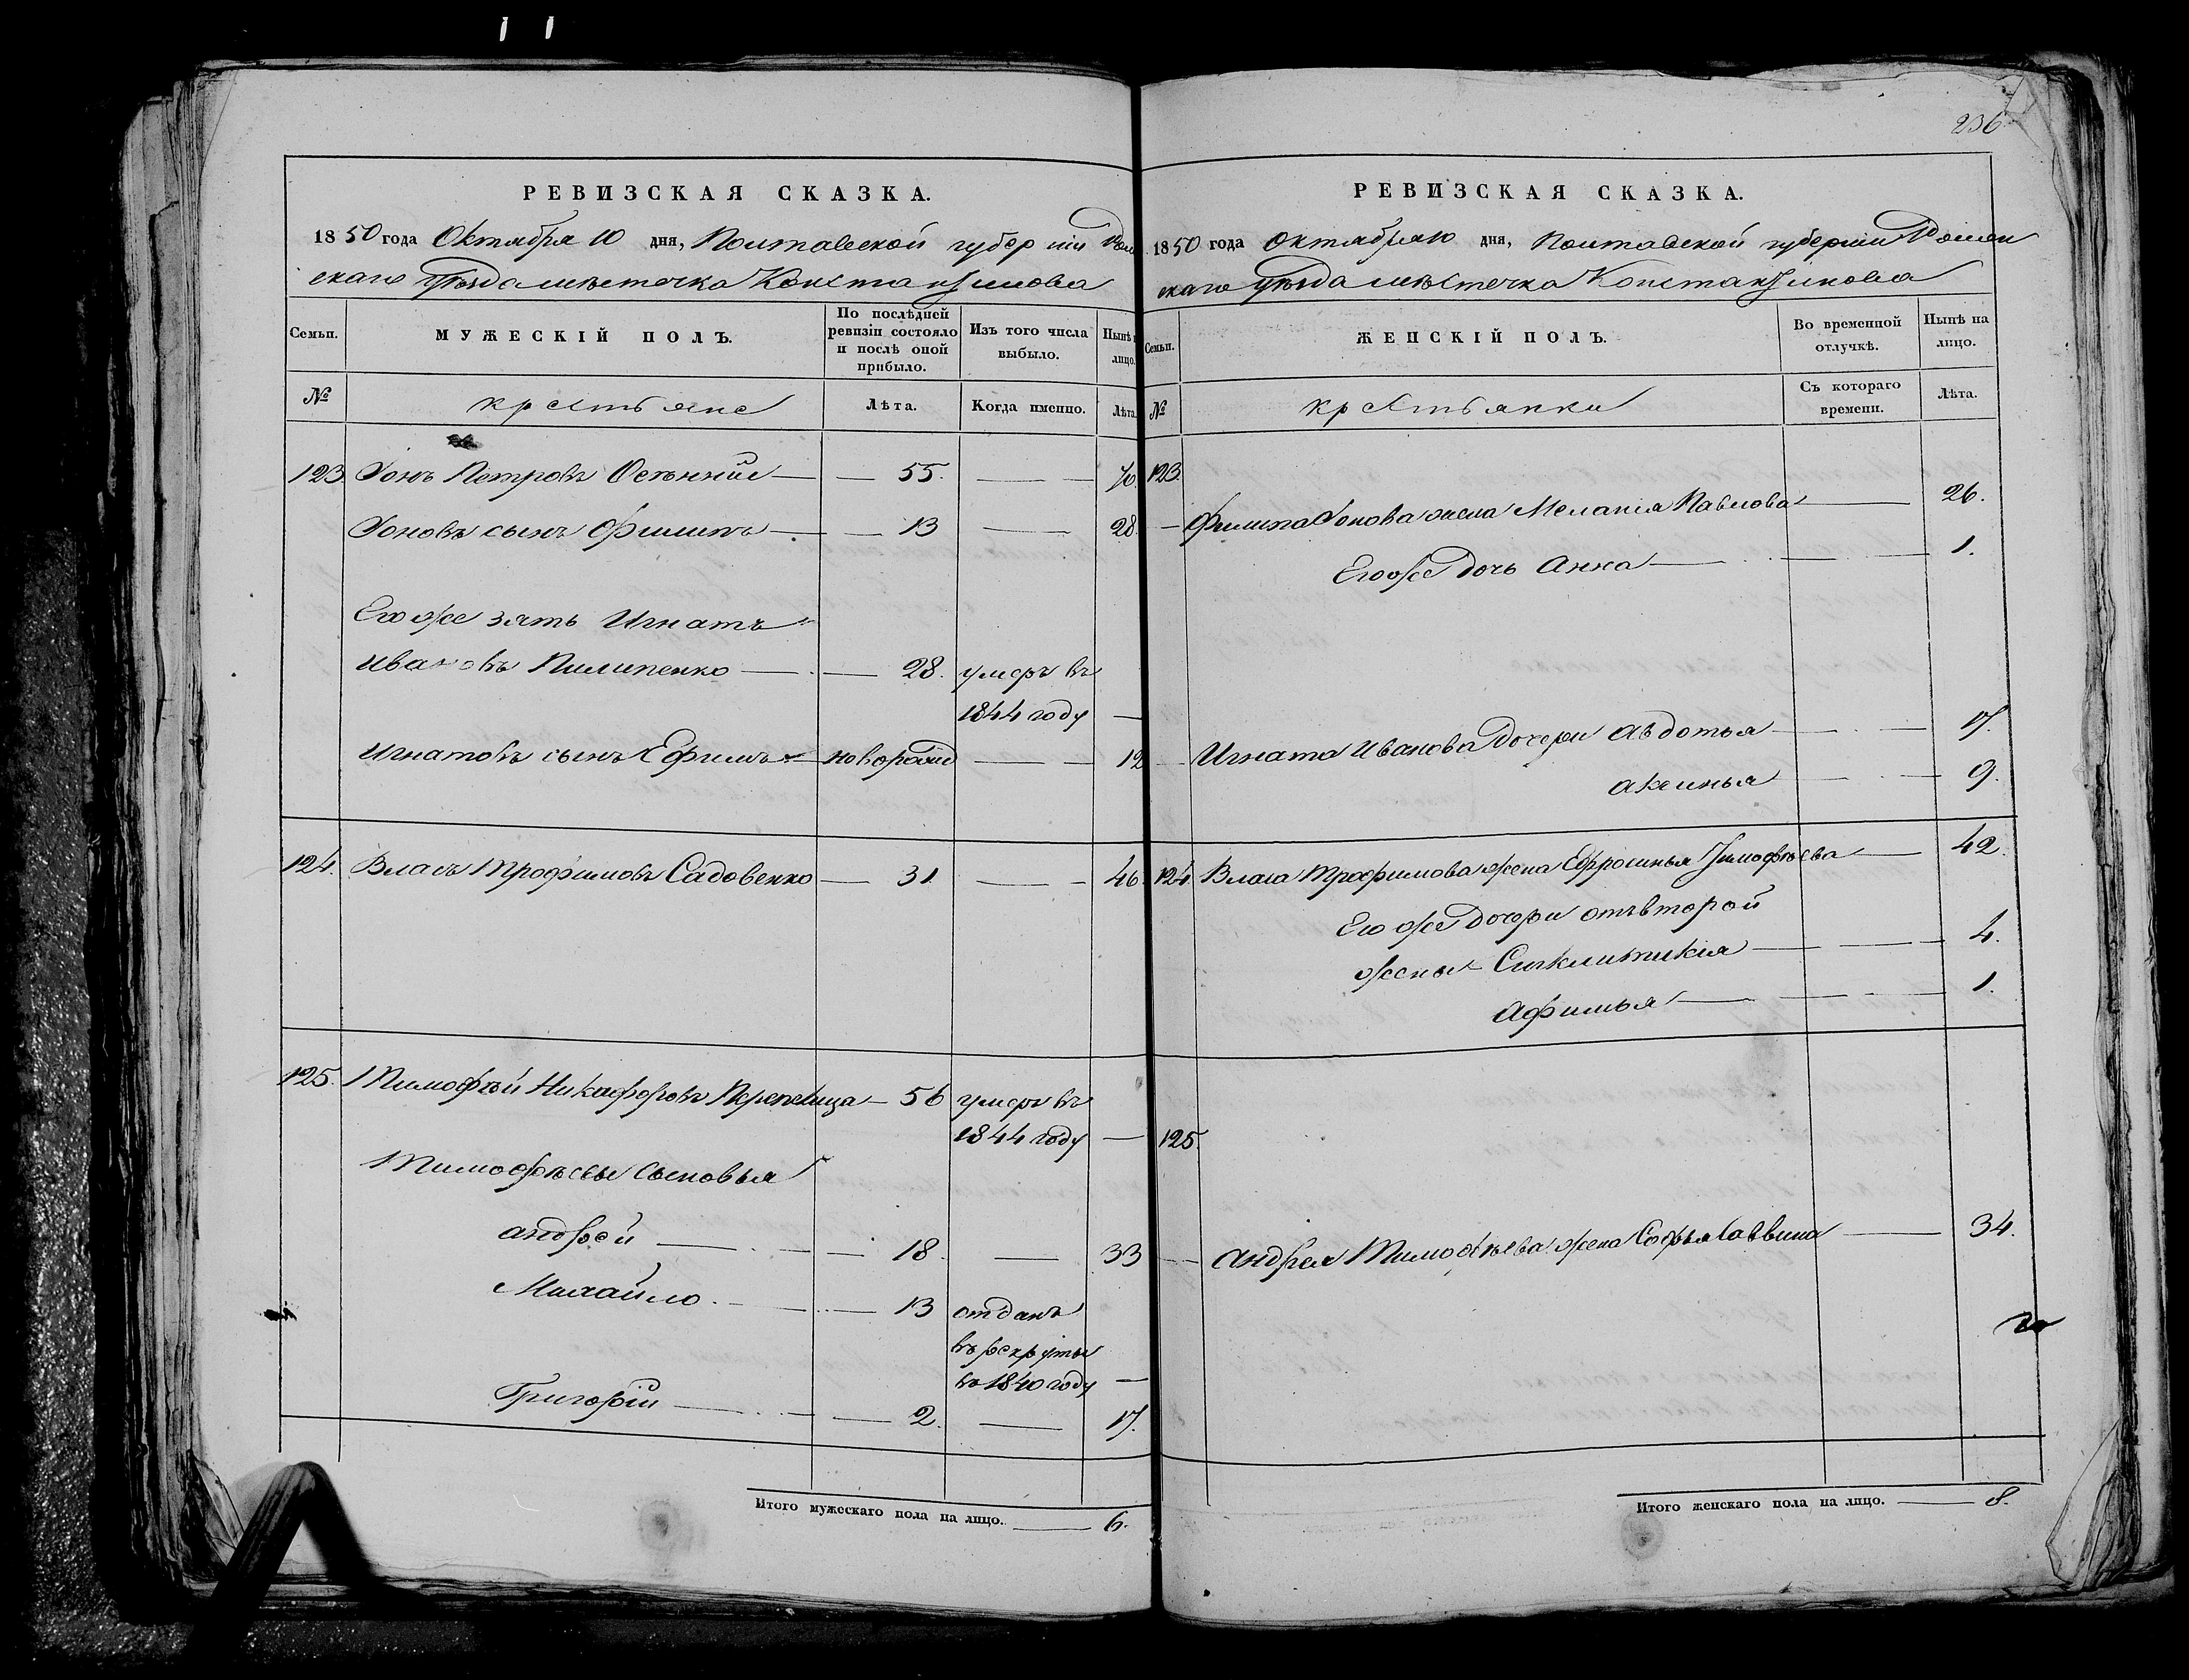 РЕВИЗСКАЯ СКАЗКА.
1850 года Октября 10 дня, Полтавской губерніи Ромен
скаго Уѣзда мѣстечка Константинова
Семьи. МУЖЕСКІЙ ПОЛЪ. По послѣдней ревизіи состояло и послѣ оной прибыло. Изъ того числа выбыло. Нынѣ на лицо.
№ крестьяне Лѣта. Когда именно. Лѣта.
123. Іовъ Петровъ — 55. — 70.
Іоновъ сынъ Филипъ — 13 — 28.
Его же зять Игнатъ
Ивановъ Пилипенко — 28. умеръ въ
1844 году —
Игнатовъ сынъ Ефимъ — новорожд — 12
124. Власъ Трофимовъ Садовенко — 31. — 46.
125. Тимофѣй Никифоровъ Перепелица — 56 умеръ въ
1844 году —
Тимофѣевы сыновья
Андрей — 18. — 33
Михайло. — 13 отданъ
въ рекруты
въ 1840 году —
Григорій — 2. — 17.
Итого мужескаго пола на лицо. — 6.
236
РЕВИЗСКАЯ СКАЗКА.
1850 года Октября 10 дня, Полтавской губерніи Ромен
скаго Уѣзда мѣстечка Константинова
Семьи. ЖЕНСКІЙ ПОЛЪ. Во временной отлучкѣ. Нынѣ на лицо.
№ крестьянки Съ котораго времени. Лѣта.
123.
Филипа Іонова жена Меланія Павлова — 26.
Его же дочь Анна — 1.
Игната Иванова дочери Авдотья — 17.
Аксинья — 9.
124. Власа Трофимова жена Ефросинья Тимофѣева — 42.
Его же дочери отъ второй
жены Синклитикія — 4.
Афимья — 1.
125.
Андрея Тимофѣева жена Софья Саввина — 34.
Итого женскаго пола на лицо. — 8.